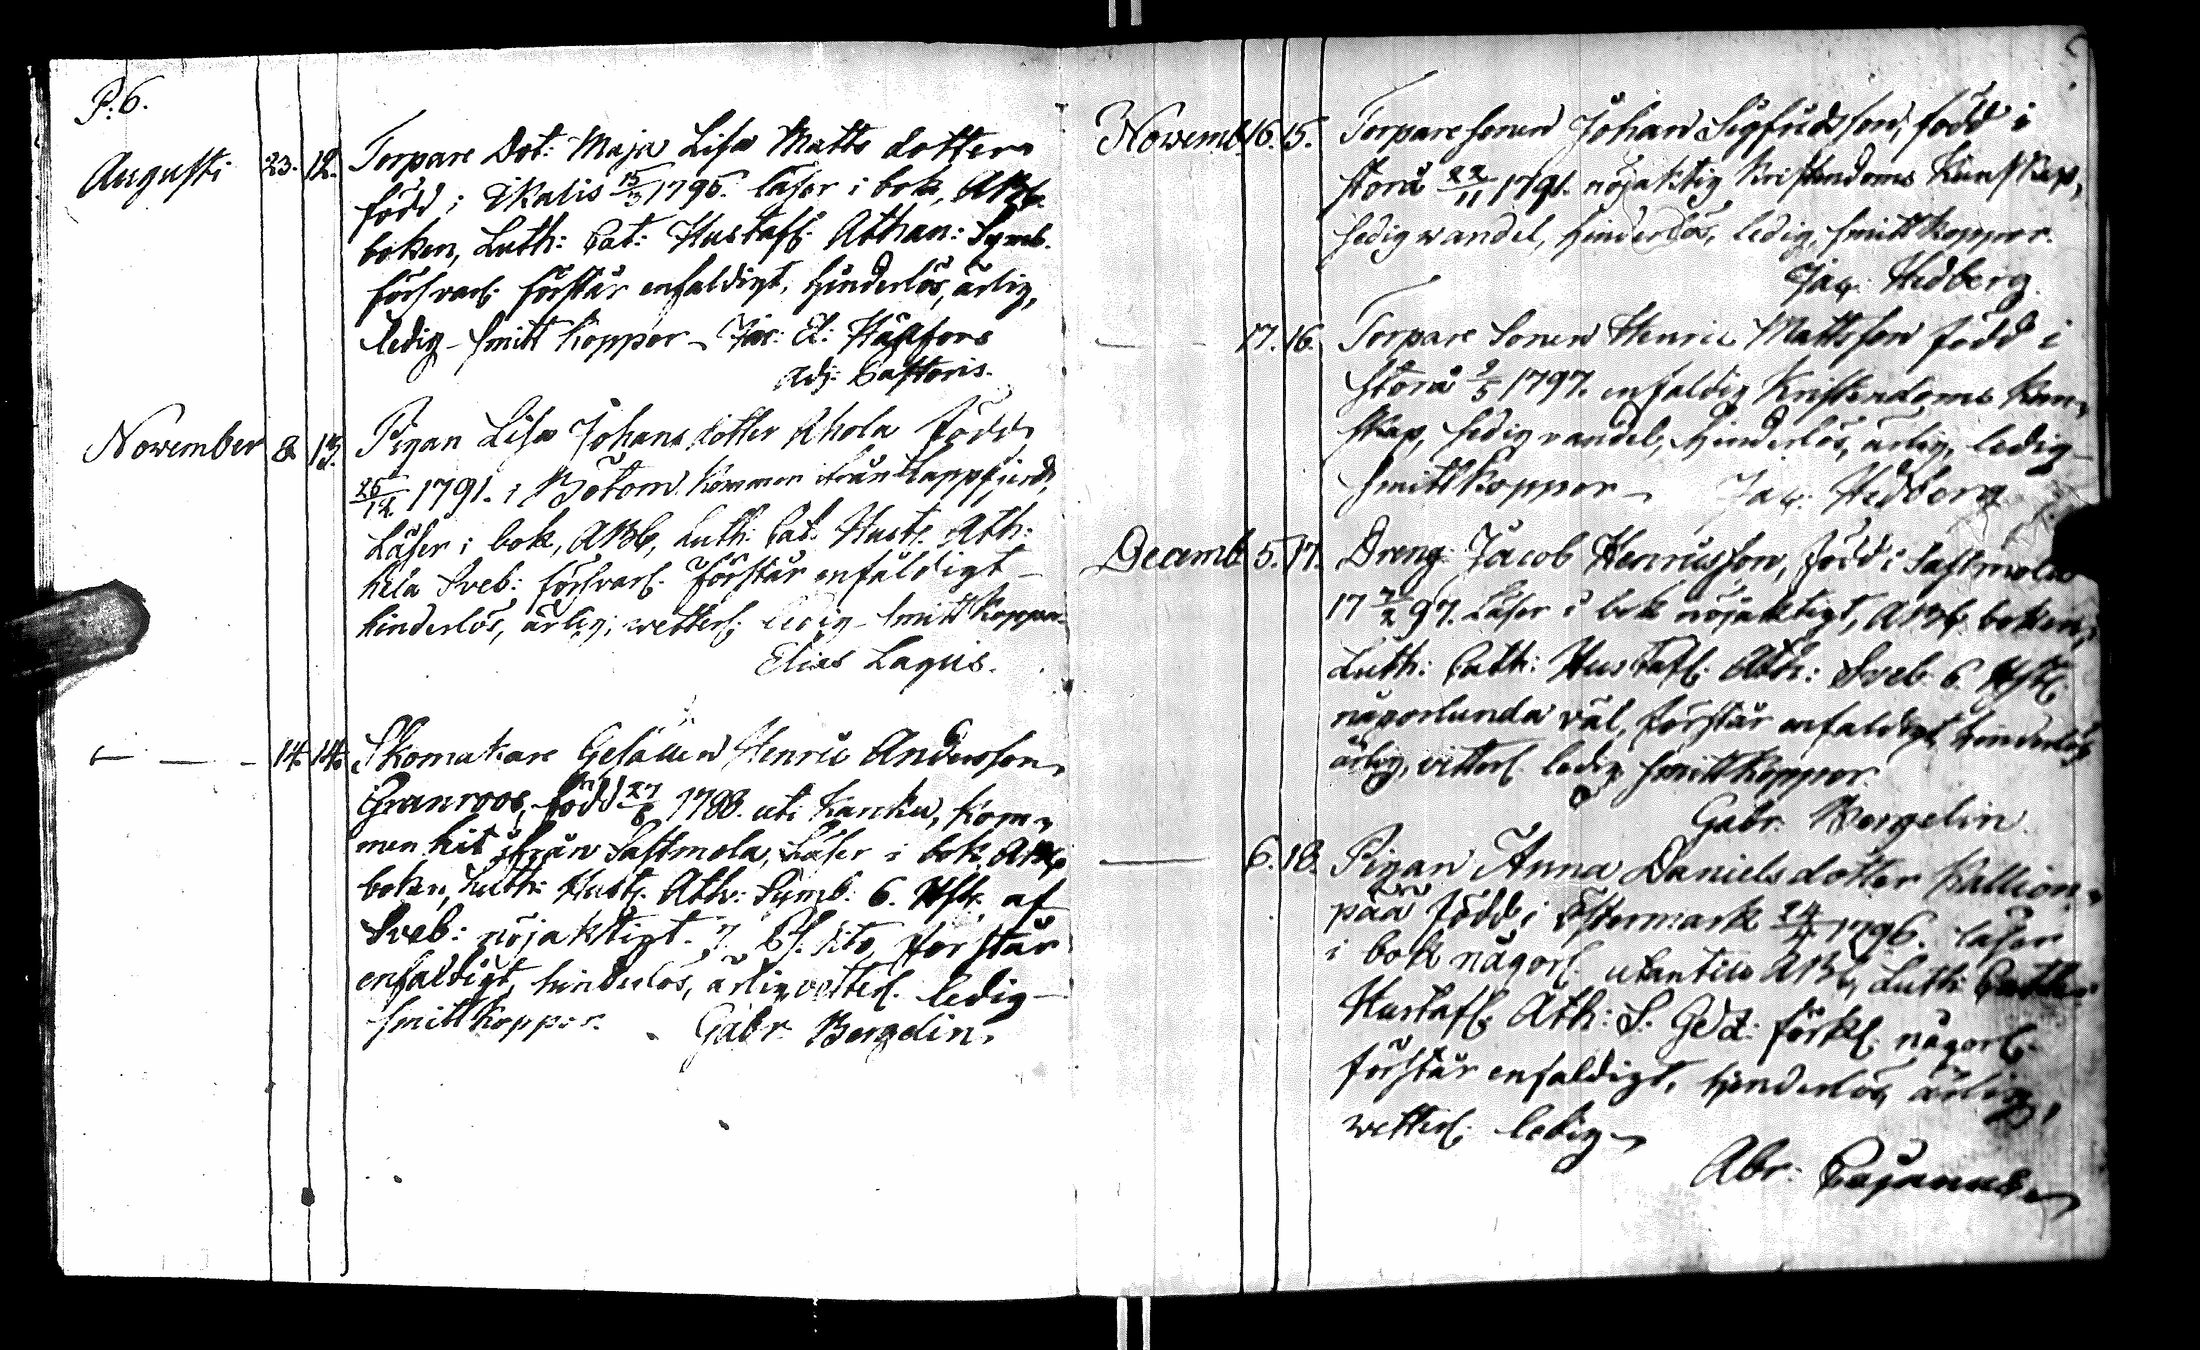 P. 6.
Augusti 23. 12. Torpare Dot: Maja Lisa Matts dotter
född i Ikalis 15/3 1795. läser i bok, ABC
boken, Luth: Cat: Hustafl: Athan: Symb.
försvarl: förstår enfaldigt, hinderlös, ärlig,
ledig - smittkoppor - Jac: El:
Adj: Pastoris.
November 8. 13. Pigan Lisa Johansdotter Rhola född
26/12 1791. i Bötom kommen ifrån Lappfierd,
Läser i bok, ABC, Luth: Cat. Hust. Ath:
hela Sveb: försvarl. förstår enfäldigt -
hinderlös, ärlig, wetterl; ledig - smittkoppor
Elias Lagus.
14. 14. Skomakare Gesällen Henric Andersson
Granroos, född 27/6 1788. uti Kanku, kom-
men hit ifrån Sastmola, Läser i bok, ABC
boken, Luth: Hust. Ath: Symb: 6. Hfst. af
Sveb: nöjaktigt. 7. förstår
enfaldigt, hinderlös, ärlig, vetterl. ledig -
smittkoppor. Gabr. Bergelin.
Novemb. 16. 15. Torpare sonen Johan Sigfridsson, född i
storå 22/11 1791. nöjaktig Kristendoms Kunskap,
sedig wandel, hinderlös, ledig, smittkoppor.
Jac: Hedberg.
17. 16. Torpare Sonen Henric Mattsson född i
storå 9/5 1797. enfaldig Kristendoms Kun-
skap, sedig vandel, hinderlös, ärlig, ledig -
smittkoppor - Jac: Hedberg
Decemb. 5. 17. Dreng: Jacob Henricsson, född i Sastmola
17 7/2 97. Läser i bok nöjaktigt, ABC boken,
Luth: Cath: Hustafl: Ath: Sveb. 6. Hfst.
någorlunda väl, förstår enfaldigt, hinderlös
ärlig, vitterl. ledig, smittkoppor.
Gabr. Bergelin.
6. 18. Pigan Anna Danielsdotter Kallion-
pää född i Östermark 24/7 1796. läser
i bok någorl. utantill ABC, Luth: Cath:
Hustafl: Ath: S. förkl. någorl.
förstår enfaldigt, hinderlös, ärlig,
wetterl. ledig -
Abr: